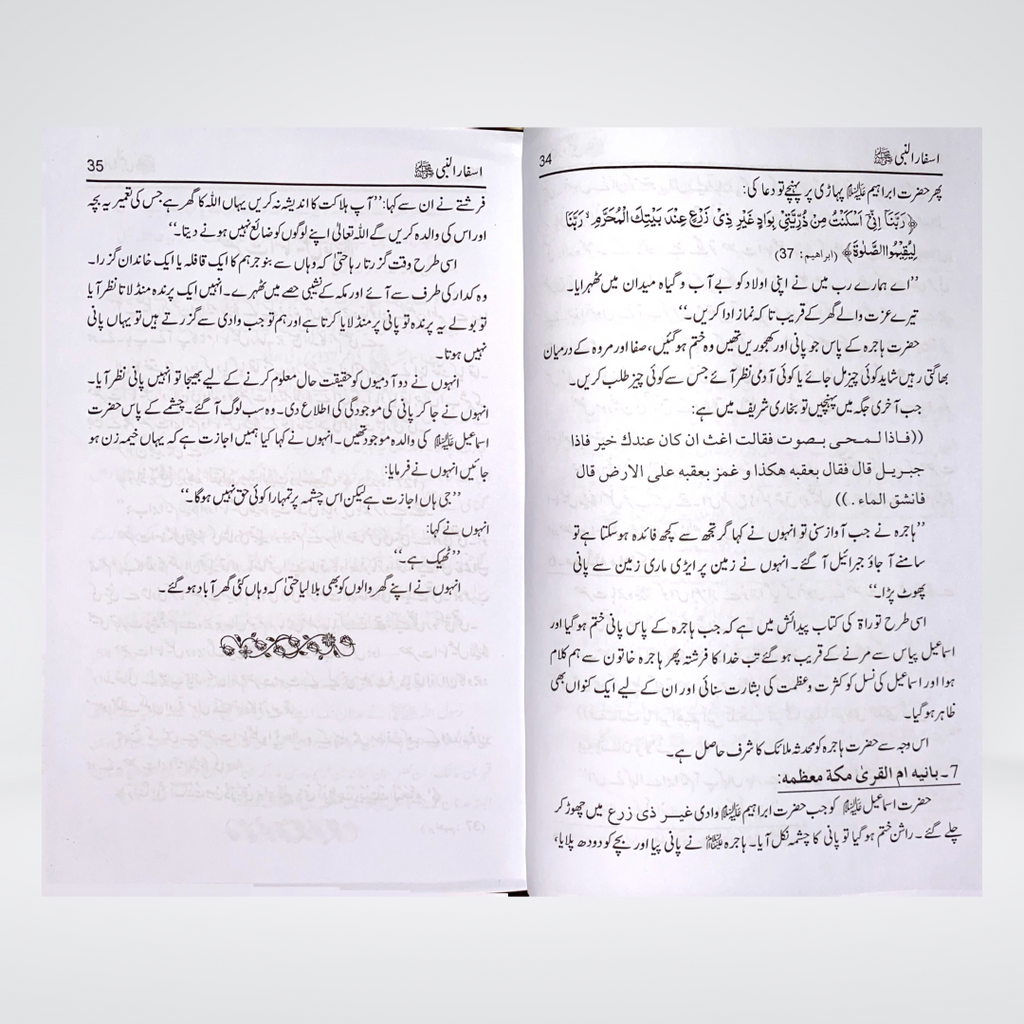 اسفار النبی ﷺ
34
پھر حضرت ابراہیم علیہ السلام پہاڑی پر پہنچے تو دعا کی:
﴿ رَبَّنَآ اِنِّیْٓ اَسْكَنْتُ مِنْ ذُرِّیَّتِیْ بِوَادٍ غَیْرِ ذِیْ زَرْعٍ عِنْدَ بَیْتِكَ الْمُحَرَّمِ ۙ رَبَّنَا
لِیُقِیْمُوا الصَّلٰوةَ ﴾ (ابراهیم: 37)
’’اے ہمارے رب میں نے اپنی اولاد کو بے آب و گیاہ میدان میں ٹھہرایا۔
تیرے عزت والے گھر کے قریب تا کہ نماز ادا کریں۔‘‘
حضرت ہاجرہ کے پاس جو پانی اور کھجوریں تھیں وہ ختم ہو گئیں، صفا اور مروہ کے درمیان
بھاگتی رہیں شاید کوئی چیز مل جائے یا کوئی آدمی نظر آئے جس سے کوئی چیز طلب کریں۔
جب آخری جگہ میں پہنچیں تو بخاری شریف میں ہے:
((فاذا لمحى بصوت فقالت اغث ان كان عندك خير فاذا
جبريل قال فقال بعقبه هكذا و غمز بعقبه على الأرض قال
فانشق الماء . ))
’’ہاجرہ نے جب آواز سنی تو انہوں نے کہا گر تجھ سے کچھ فائدہ ہو سکتا ہے تو
سامنے آ جاؤ جبرائیل آ گئے۔ انہوں نے زمین پر ایڑی ماری زمین سے پانی
پھوٹ پڑا۔‘‘
اسی طرح توراۃ کی کتاب پیدائش میں ہے کہ جب ہاجرہ کے پاس پانی ختم ہو گیا اور
اسماعیل پیاس سے مرنے کے قریب ہو گئے تب خدا کا فرشتہ پھر ہاجرہ خاتون سے ہم کلام
ہوا اور اسماعیل کی نسل کو کثرت و عظمت کی بشارت سنائی اور ان کے لیے ایک کنواں بھی
ظاہر ہو گیا۔
اس وجہ سے حضرت ہاجرہ کو محدثہ ملائک کا شرف حاصل ہے۔
7۔ بانیه ام القریٰ مکة معظمه:
حضرت اسماعیل علیہ السلام کو جب حضرت ابراہیم علیہ السلام وادی غیر ذی زرع میں چھوڑ کر
چلے گئے۔ راشن ختم ہو گیا تو پانی کا چشمہ نکل آیا۔ ہاجرہ نے پانی پیا اور بچے کو دودھ پلایا،
اسفار النبی ﷺ
35
فرشتے نے ان سے کہا: ’’آپ ہلاکت کا اندیشہ نہ کریں یہاں اللہ کا گھر ہے جس کی تعمیر یہ بچہ
اور اس کی والدہ کریں گے اللہ تعالیٰ اپنے لوگوں کو ضائع نہیں ہونے دیتا۔‘‘
اسی طرح وقت گزرتا رہا حتیٰ کہ وہاں سے بنو جرہم کا ایک قافلہ یا ایک خاندان گزرا۔
وہ کدار کی طرف سے آئے اور مکہ کے نشیبی حصے میں ٹھہرے۔ انہیں ایک پرندہ منڈلاتا نظر آیا
تو بولے یہ پرندہ تو پانی پر منڈلایا کرتا ہے اور ہم تو جب وادی سے گزرتے ہیں تو یہاں پانی
نہیں ہوتا۔
انہوں نے دو آدمیوں کو حقیقت حال معلوم کرنے کے لیے بھیجا تو انہیں پانی نظر آیا۔
انہوں نے جا کر پانی کی موجودگی کی اطلاع دی۔ وہ سب لوگ آ گئے۔ چشمے کے پاس حضرت
اسماعیل علیہ السلام کی والدہ موجود تھیں۔ انہوں نے کہا کیا ہمیں اجازت ہے کہ یہاں خیمہ زن ہو
جائیں انہوں نے فرمایا:
’’جی ہاں اجازت ہے لیکن اس چشمہ پر تمہارا کوئی حق نہیں ہوگا۔‘‘
انہوں نے کہا:
’’ٹھیک ہے۔‘‘
انہوں نے اپنے گھر والوں کو بھی بلا لیا حتیٰ کہ وہاں کئی گھر آباد ہو گئے۔